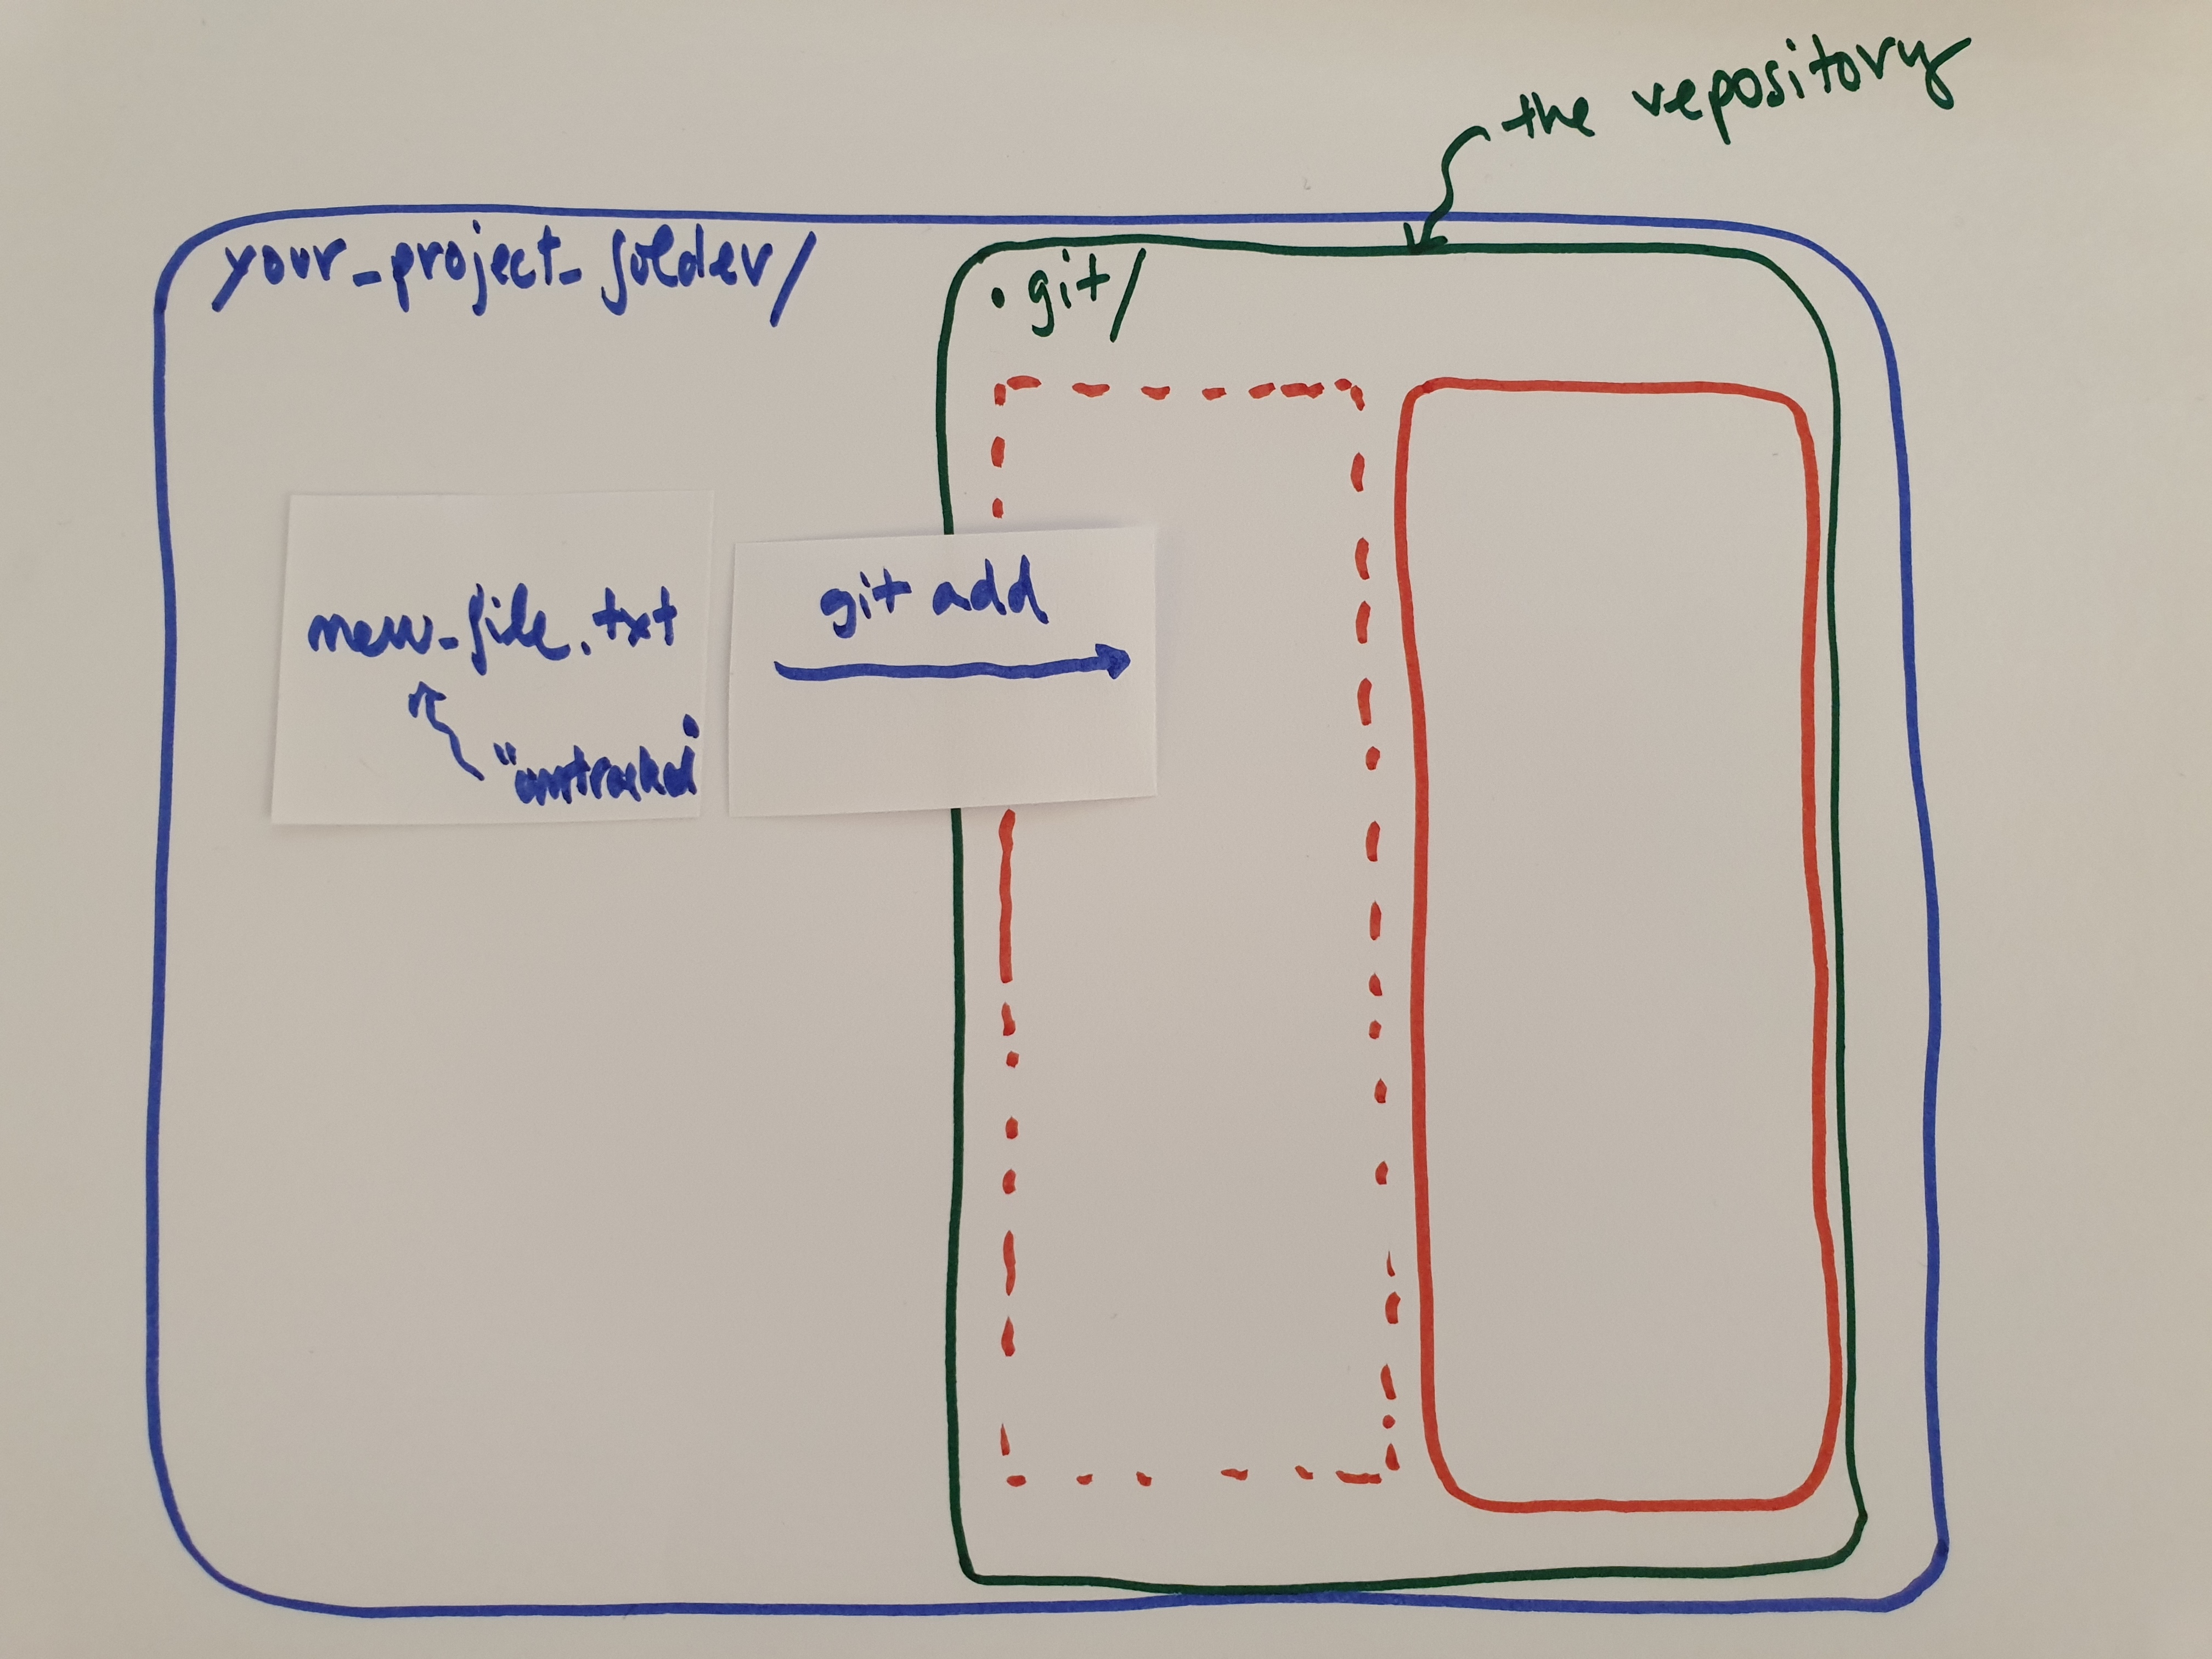 the repository
your_project_folder/
.git/
new_file.txt
"untracked"
git add